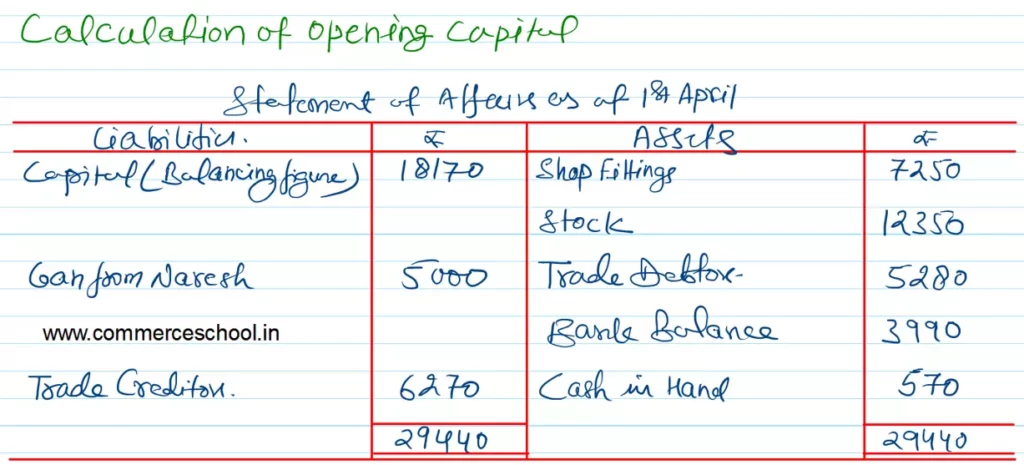 Calculation of Opening Capital
Statement of Affairs as at 1st April
Liabilities. ₹ Assets ₹
Capital (Balancing figure) 18170 Shop Fittings 7250
Stock 12350
Loan from Naresh 5000 Trade Debtors 5280
www.commerceschool.in Bank Balance 3990
Trade Creditors. 6270 Cash in Hand 570
29440 29440